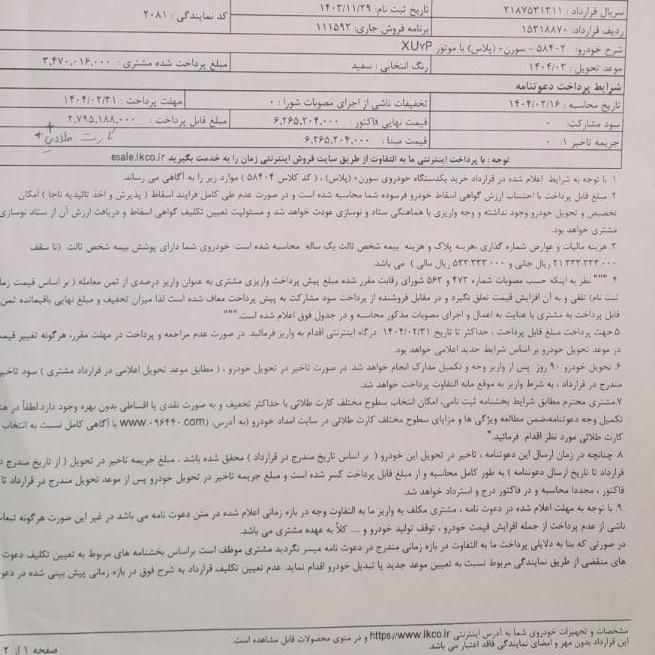 سریال قرارداد: ۲۱۸۷۵۳۱۳۱۱ تاریخ ثبت نام: ۱۴۰۳/۱۱/۲۹ کد نمایندگی: ۲۰۸۱
ردیف قرارداد: ۱۵۳۱۸۸۷۰ برنامه فروش جاری: ۱۱۱۵۹۲
شرح خودرو: ۵۸۴۰۲ - سورن+ (پلاس) با موتور XU۷P
موعد تحویل: ۱۴۰۴/۰۳ رنگ انتخابی: سفید مبلغ پرداخت شده مشتری: ۳,۴۷۰,۰۱۶,۰۰۰
شرایط پرداخت دعوتنامه
تاریخ محاسبه: ۱۴۰۴/۰۲/۱۶ تخفیفات ناشی از اجرای مصوبات شورا: ۰ مهلت پرداخت: ۱۴۰۴/۰۲/۳۱
سود مشارکت: ۰ قیمت نهایی فاکتور: ۶,۲۶۵,۲۰۴,۰۰۰ مبلغ قابل پرداخت: ۲,۷۹۵,۱۸۸,۰۰۰
جریمه تاخیر ۱: ۰ قیمت مبنا: ۶,۲۶۵,۲۰۴,۰۰۰ + کارت طلایی
توجه: با پرداخت اینترنتی ما به التفاوت از طریق سایت فروش اینترنتی زمان را به خدمت بگیرید esale.ikco.ir
۱. با توجه به شرایط اعلام شده در قرارداد خرید یکدستگاه خودروی سورن+ (پلاس)، (کد کلاس ۵۸۴۰۴) موارد زیر را به آگاهی می رساند.
۲. مبلغ قابل پرداخت با احتساب ارزش گواهی اسقاط خودرو فرسوده شما محاسبه شده است و در صورت عدم طی کامل فرایند اسقاط (پذیرش و اخذ تائیدیه ناجا) امکان
تخصیص و تحویل خودرو وجود نداشته و وجه واریزی با هماهنگی ستاد و نوسازی عودت خواهد شد و مسئولیت تعیین تکلیف گواهی اسقاط و دریافت ارزش آن از ستاد نوسازی
مشتری خواهد بود.
۳. هزینه مالیات و عوارض شماره گذاری ،هزینه پلاک و هزینه بیمه شخص ثالث یک ساله محاسبه شده است. خودروی شما دارای پوشش بیمه شخص ثالث (تا سقف
۲۱.۳۳۳.۳۳۳.۰۰۰ ریال جانی و ۵۳۳.۳۳۳.۰۰۰ ریال مالی) می باشد.
۴. """نظر به اینکه حسب مصوبات شماره ۴۷۳ و ۵۶۳ شورای رقابت مقرر شده مبلغ پیش پرداخت واریزی مشتری به عنوان واریز درصدی از ثمن معامله (بر اساس قیمت
ثبت نام) تلقی و به آن افزایش قیمت تعلق نگیرد و در مقابل فروشنده از پرداخت سود مشارکت به پیش پرداخت معاف شده است لذا میزان تخفیف و مبلغ نهایی باقیمانده ثمن
قابل پرداخت به مشتری با عنایت به اعمال و اجرای مصوبات مذکور محاسبه و در جدول فوق اعلام شده است."""
۵.جهت پرداخت مبلغ قابل پرداخت ، حداکثر تا تاریخ ۱۴۰۴/۰۲/۳۱ درگاه اینترنتی اقدام به واریز فرمائید. در صورت عدم مراجعه و پرداخت در مهلت مقرر، هرگونه تغییر
در موعد تحویل خودرو بر اساس شرایط جدید اعلامی خواهد بود.
۶. تحویل خودرو ۹۰ روز پس از واریز وجه و تکمیل مدارک انجام خواهد شد. در صورت تاخیر در تحویل خودرو ، (مطابق موعد تحویل اعلامی در قرارداد مشتری) سود تاخیر
مندرج در قرارداد ، به شرط واریز به موقع مابه التفاوت پرداخت خواهد شد.
۷.مشتری محترم مطابق شرایط بخشنامه ثبت نامی، امکان انتخاب سطوح مختلف کارت طلائی با حداکثر تخفیف و به صورت نقدی یا اقساطی بدون بهره وجود دارد.لطفاً در
تکمیل وجه دعوتنامه،ضمن مطالعه ویژگی ها و مزایای سطوح مختلف کارت طلائی در سایت امداد خودرو (به آدرس: www.۰۹۶۴۴۰.com) با آگاهی کامل نسبت به انتخاب
کارت طلائی مورد نظر اقدام فرمائید."
۸. چنانچه در زمان ارسال این دعوتنامه ، تاخیر در تحویل این خودرو (بر اساس تاریخ مندرج در قرارداد) محقق شده باشد ، مبلغ جریمه تاخیر در تحویل (از تاریخ مندرج
قرارداد تا تاریخ ارسال دعوتنامه) به طور کامل محاسبه و از مبلغ قابل پرداخت کسر شده است و مبلغ جریمه تاخیر در تحویل خودرو پس از موعد تحویل مندرج در قرارداد تا
فاکتور ، مجددا محاسبه و در فاکتور درج و استرداد خواهد شد.
۹. با توجه به مهلت اعلام شده در دعوت نامه ، مشتری مکلف به واریز ما به التفاوت وجه در بازه زمانی اعلام شده در متن دعوت نامه می باشد در غیر این صورت هرگونه
ناشی از عدم پرداخت از جمله افزایش قیمت خودرو ، توقف تولید خودرو و .... کلاً به عهده مشتری می باشد.
در صورتی که بنا به دلایلی پرداخت ما به التفاوت در بازه زمانی مندرج در دعوت نامه میسر نگردید مشتری موظف است براساس بخشنامه های مربوط به تعیین تکلیف دعوت
های منقضی از طریق نمایندگی مربوط نسبت به تعیین موعد جدید یا تبدیل خودرو اقدام نماید. عدم تعیین تکلیف قرارداد به شرح فوق در بازه زمانی پیش بینی شده در
مشخصات و تجهیزات خودروی شما به آدرس اینترنتی https://www.ikco.ir و در منوی محصولات قابل مشاهده است.
این قرارداد بدون مهر و امضای نمایندگی فاقد اعتبار می باشد. صفحه ۱ از ۲